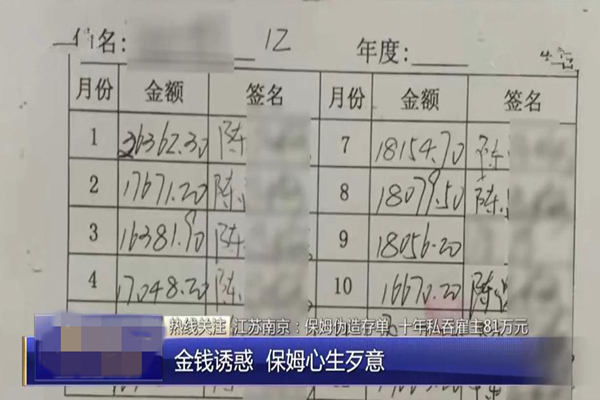 名: 12 年度:
月份 金额 签名 月份 金额 签名
1 26362.30 陈 7 18154.70 陈
2 17671.20 陈 8 18079.50 陈
3 16381.90 陈 9 18056.20
4 17048.20 陈 10 16670.20 陈
热线关注 江苏南京：保姆伪造存单 十年私吞雇主81万元
金钱诱惑 保姆心生歹意